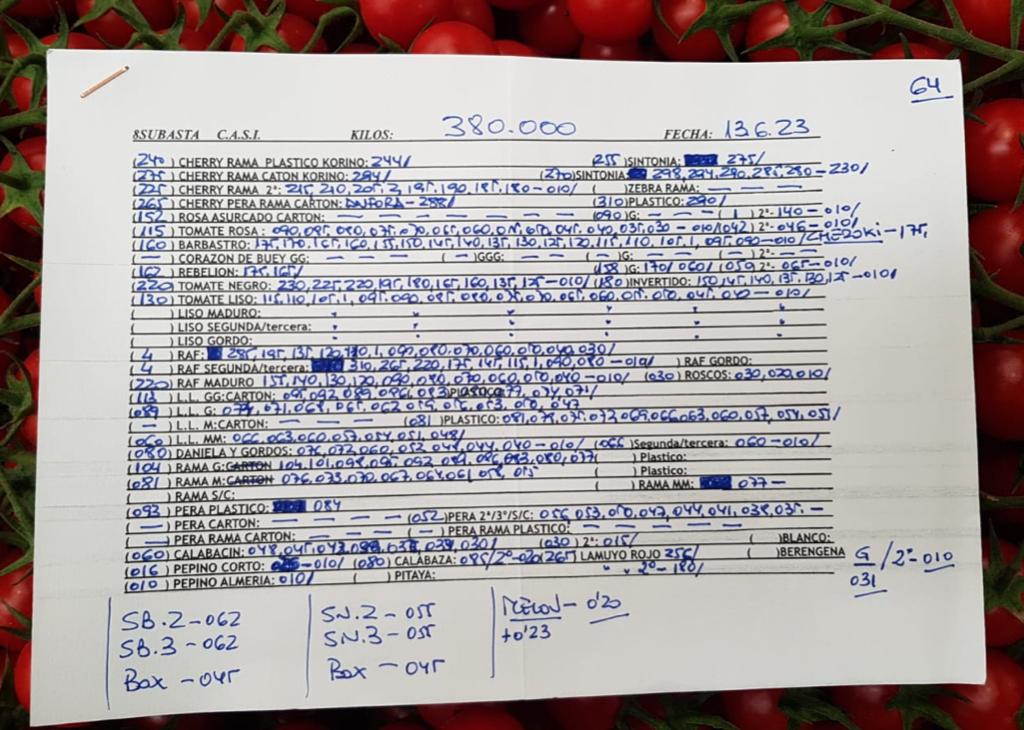 64
8SUBASTA C.A.S.I. KILOS: 380.000 FECHA: 13.6.23
(240) CHERRY RAMA PLASTICO KORINO: 244/ (255)SINTONIA: 275/
(275) CHERRY RAMA CATON KORINO: 284/ (270)SINTONIA: 298, 294, 290, 285, 280-230/
(225) CHERRY RAMA 2ª: 215, 210, 205, 2, 195, 190, 185, 180-010/ ( )ZEBRA RAMA: — — —
(265) CHERRY PERA RAMA CARTON: DAIFORA-288/ (310)PLASTICO: 290/
(152) ROSA ASURCADO CARTON: — — — — — — (090)G: — — — (1) 2ª-140-010/
(115) TOMATE ROSA: 090, 085, 080, 075, 070, 065, 060, 055, 050, 045, 040, 035, 030-010/(042) 2ª-046-010/
(160) BARBASTRO: 175, 170, 165, 160, 155, 150, 145, 140, 135, 130, 125, 120, 115, 110, 105, 1, 095, 090-010/CHEROKI-175,
(—) CORAZON DE BUEY GG: — — — (—)GGG: — — (—)G: — — (—) 2ª- —
(162) REBELION: 175, 165/ (158)G: 170/060/(059 2ª-065-010/
(220) TOMATE NEGRO: 230, 225, 220, 195, 180, 165, 160, 135, 125-010/ (180)INVERTIDO: 150, 145, 140, 135, 130, 125-010/
(130) TOMATE LISO: 115, 110, 105, 1, 095, 090, 085, 080, 075, 070, 065, 060, 055, 050, 045, 040-010/
( ) LISO MADURO:
( ) LISO SEGUNDA/tercera:
( ) LISO GORDO:
(4) RAF: 285, 195, 135, 120, 110, 1, 090, 080, 070, 060, 050, 040, 030/
(4) RAF SEGUNDA/tercera: 310, 265, 220, 175, 145, 115, 1, 090, 080-010/ ( ) RAF GORDO:
(220) RAF MADURO 155, 140, 130, 120, 090, 080, 070, 060, 050, 040-010/ (030) ROSCOS: 030, 020, 010/
(113) L.L. GG:CARTON: 095, 092, 089, 086, 083 PLASTICO 077, 074, 071/
(089) L.L. G: 074, 071, 068, 065, 062, 059, 056, 053, 050, 047
(—) L.L. M:CARTON: — — — (081)PLASTICO: 081, 078, 075, 072, 069, 066, 063, 060, 057, 054, 051/
(060) L.L. MM: 066, 063, 060, 057, 054, 051, 048/
(080) DANIELA Y GORDOS: 076, 072, 060, 052, 048, 044, 040-010/ (066)Segunda/tercera: 060-010/
(104) RAMA G:CARTON 104, 101, 098, 095, 092, 089, 086, 083, 080, 077 ( ) Plastico:
(081) RAMA M:CARTON 076, 073, 070, 067, 064, 061, 058, 055 ( ) Plastico:
( ) RAMA S/C: ( ) RAMA MM: 077-
(093) PERA PLASTICO: 084
(—) PERA CARTON: — — — — (052)PERA 2ª/3ª/S/C: 056, 053, 050, 047, 044, 041, 038, 035. —
(—) PERA RAMA CARTON: — — — (—) PERA RAMA PLASTICO: — — — — —
(060) CALABACIN: 048, 045, 042, 038, 039, 030/ (030) 2ª: 015/ ( )BLANCO:
(016) PEPINO CORTO: -010/ (080) CALABAZA: 085/2ª-020(265) LAMUYO ROJO 256/ ( )BERENGENA G/2ª-010
(010) PEPINO ALMERIA: 010/ ( )PITAYA: " " 2ª-180/ 031
SB.2-062 SN.2-055 MELON-0'20
SB.3-062 SN.3-055 +0'23
Box-045 Box-045